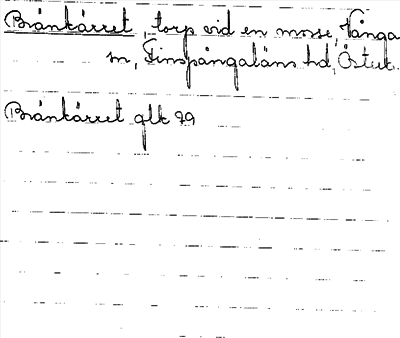 Bränkärret, torp vid en mosse, Vånga
sn, Finspångaläns hd, Österg.
Bränkärret glk 99